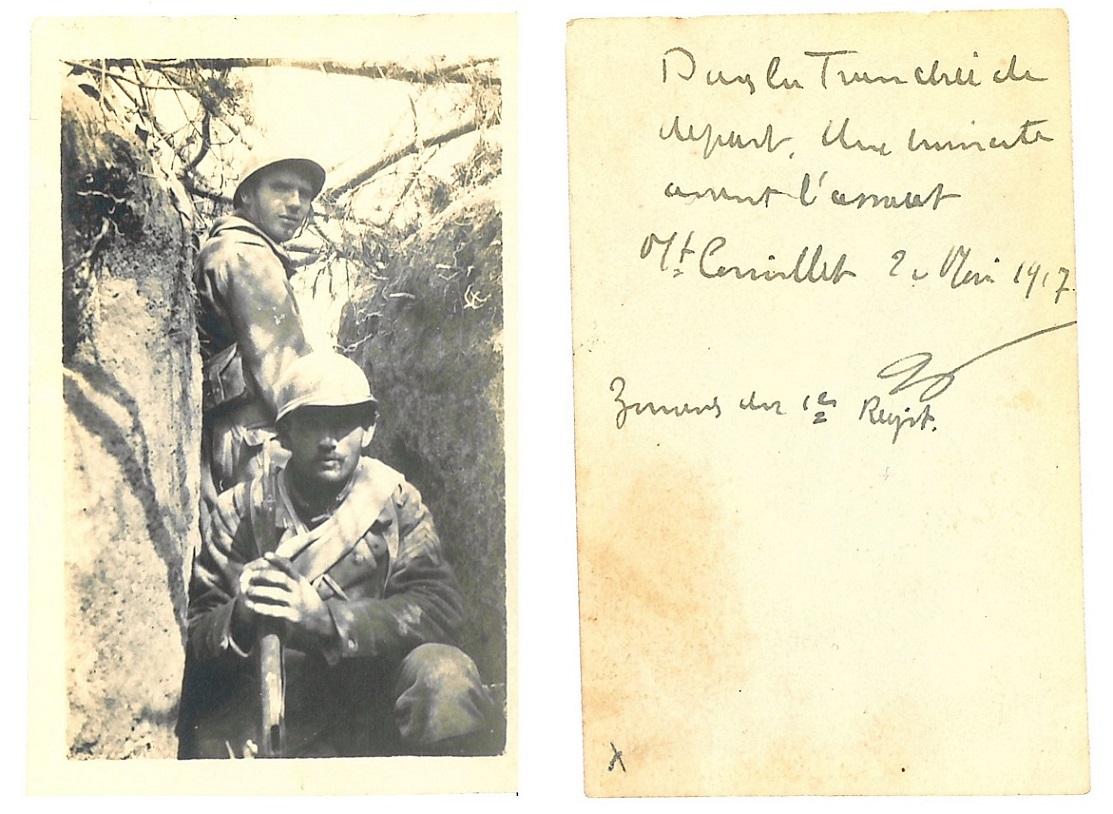 Dans la Tranchée de
départ. Une minute
avant l'assaut
Mt Cornillet 20 Mai 1917
Zouaves du 1er Regt.
X